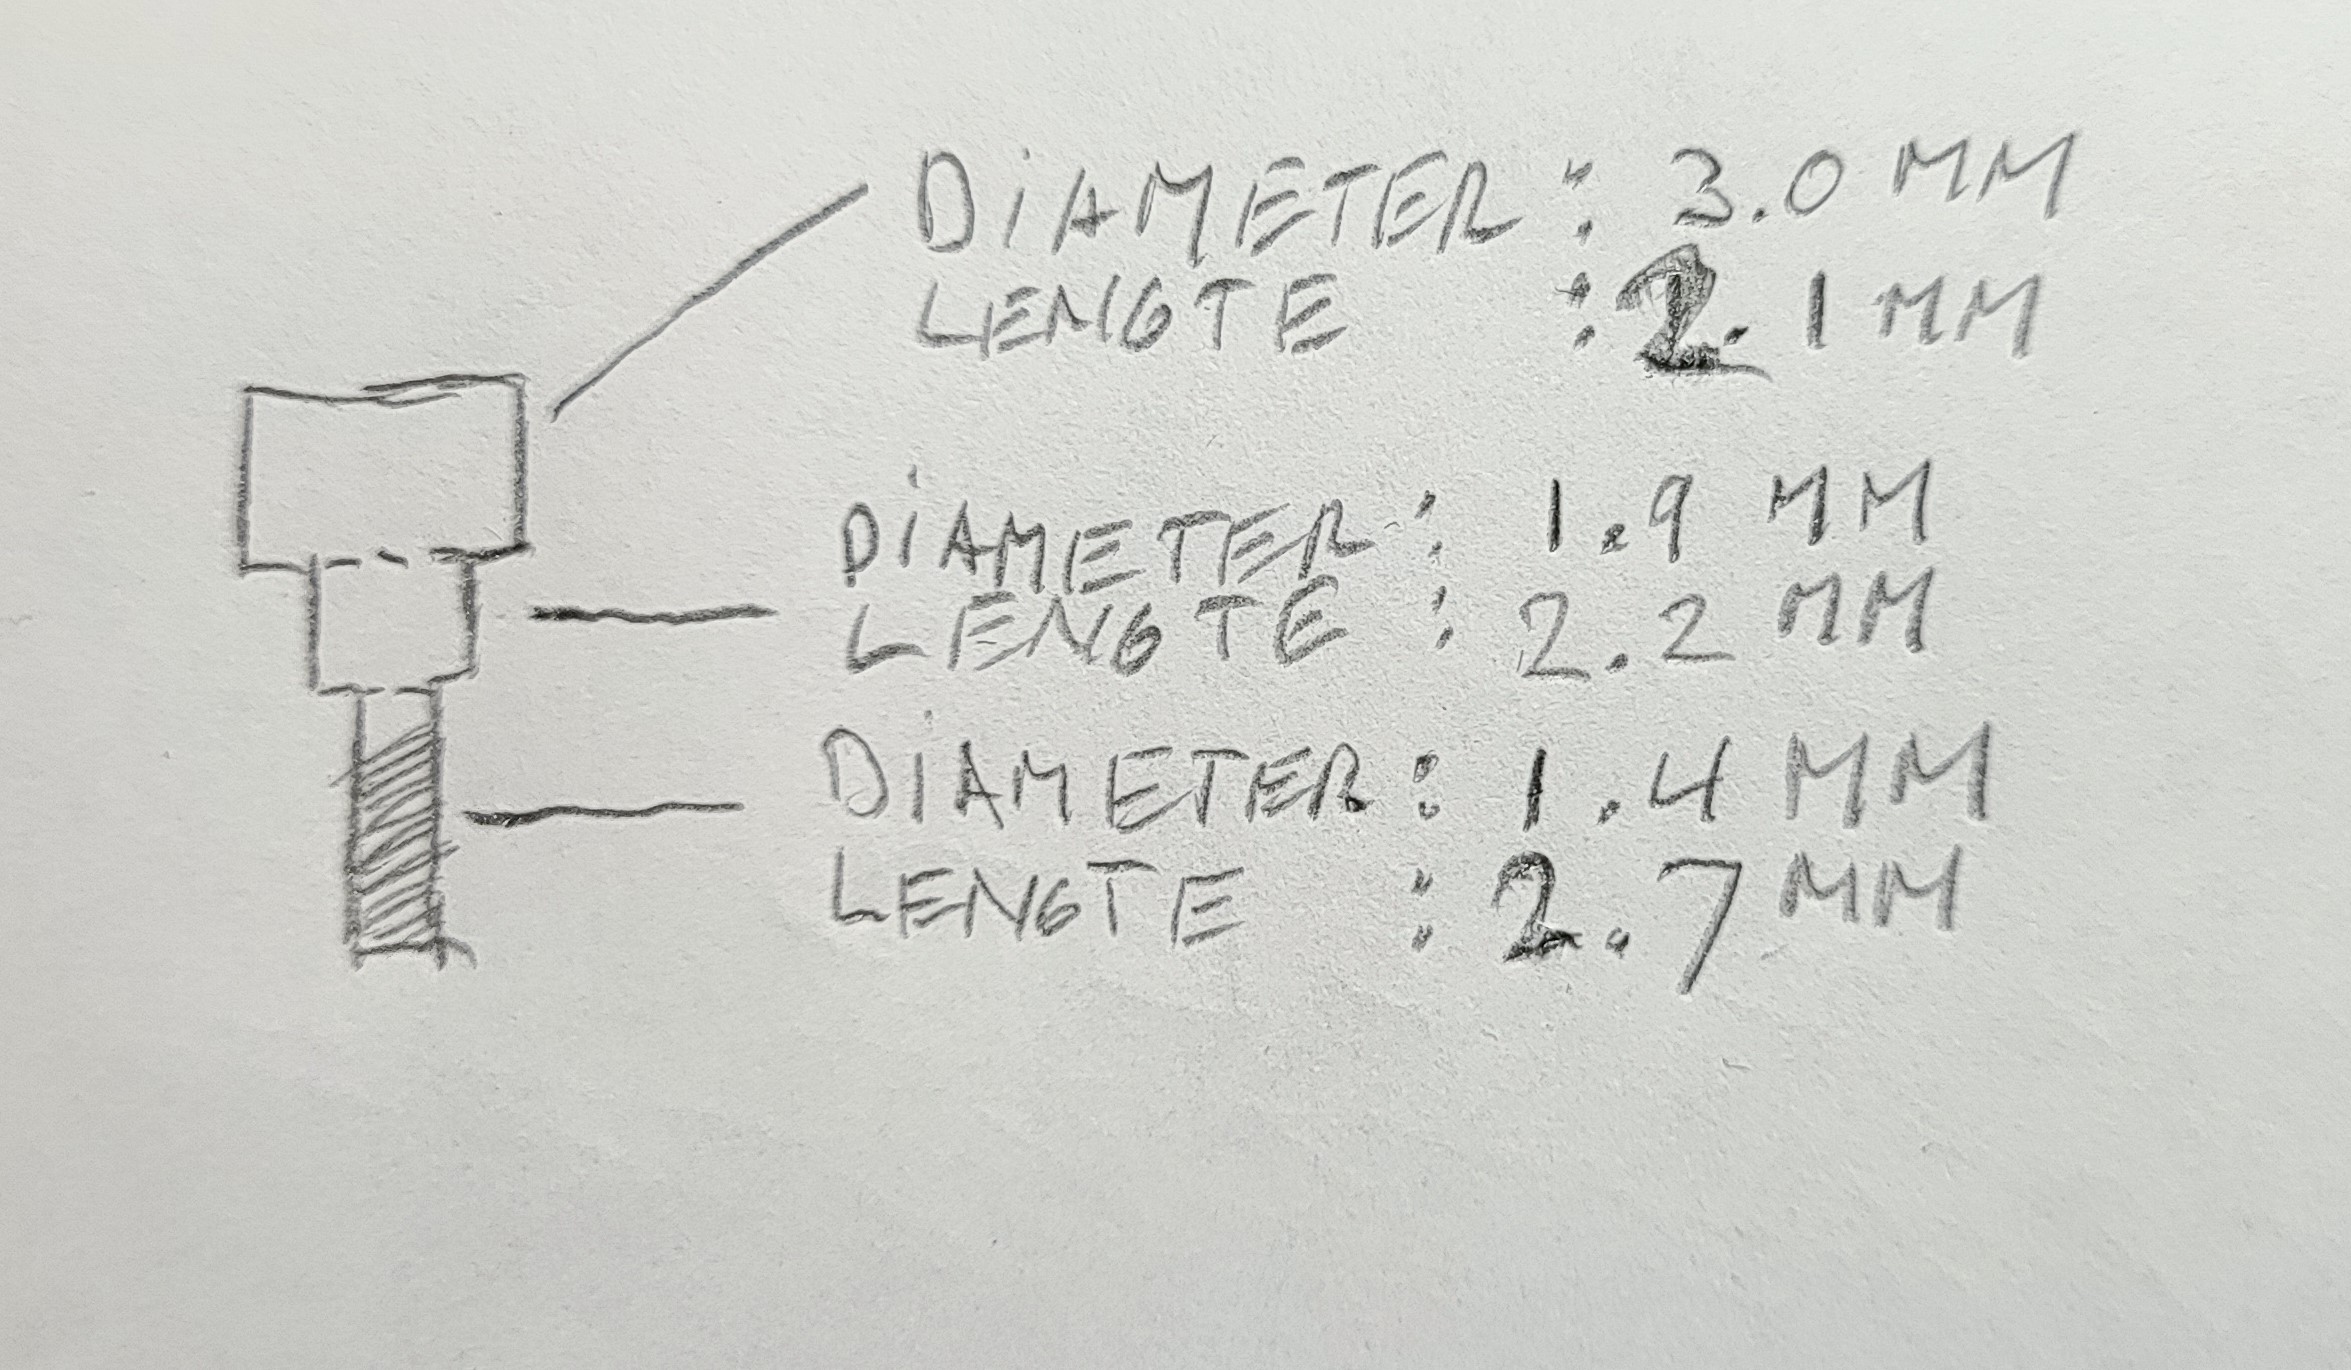 DIAMETER : 3.0 MM
LENGTE : 2.1 MM
DIAMETER : 1.9 MM
LENGTE : 2.2 MM
DIAMETER : 1.4 MM
LENGTE : 2.7 MM